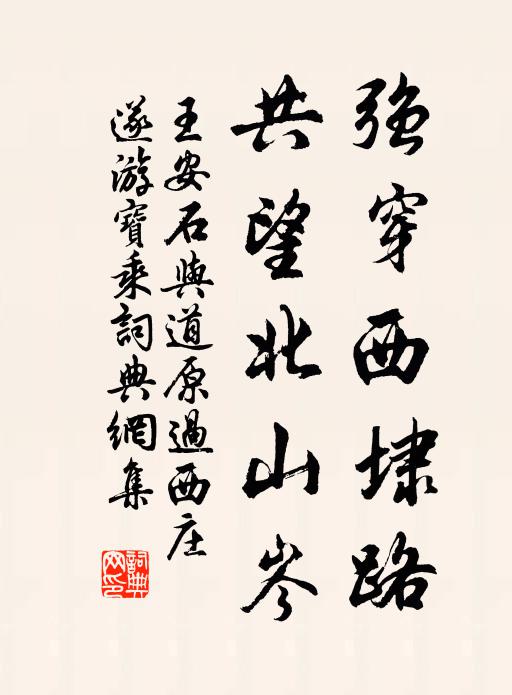 强穿西埭路
共望北山岑
王安石與道原過西庄
遂游寶乘詞典網集
詞典
网印